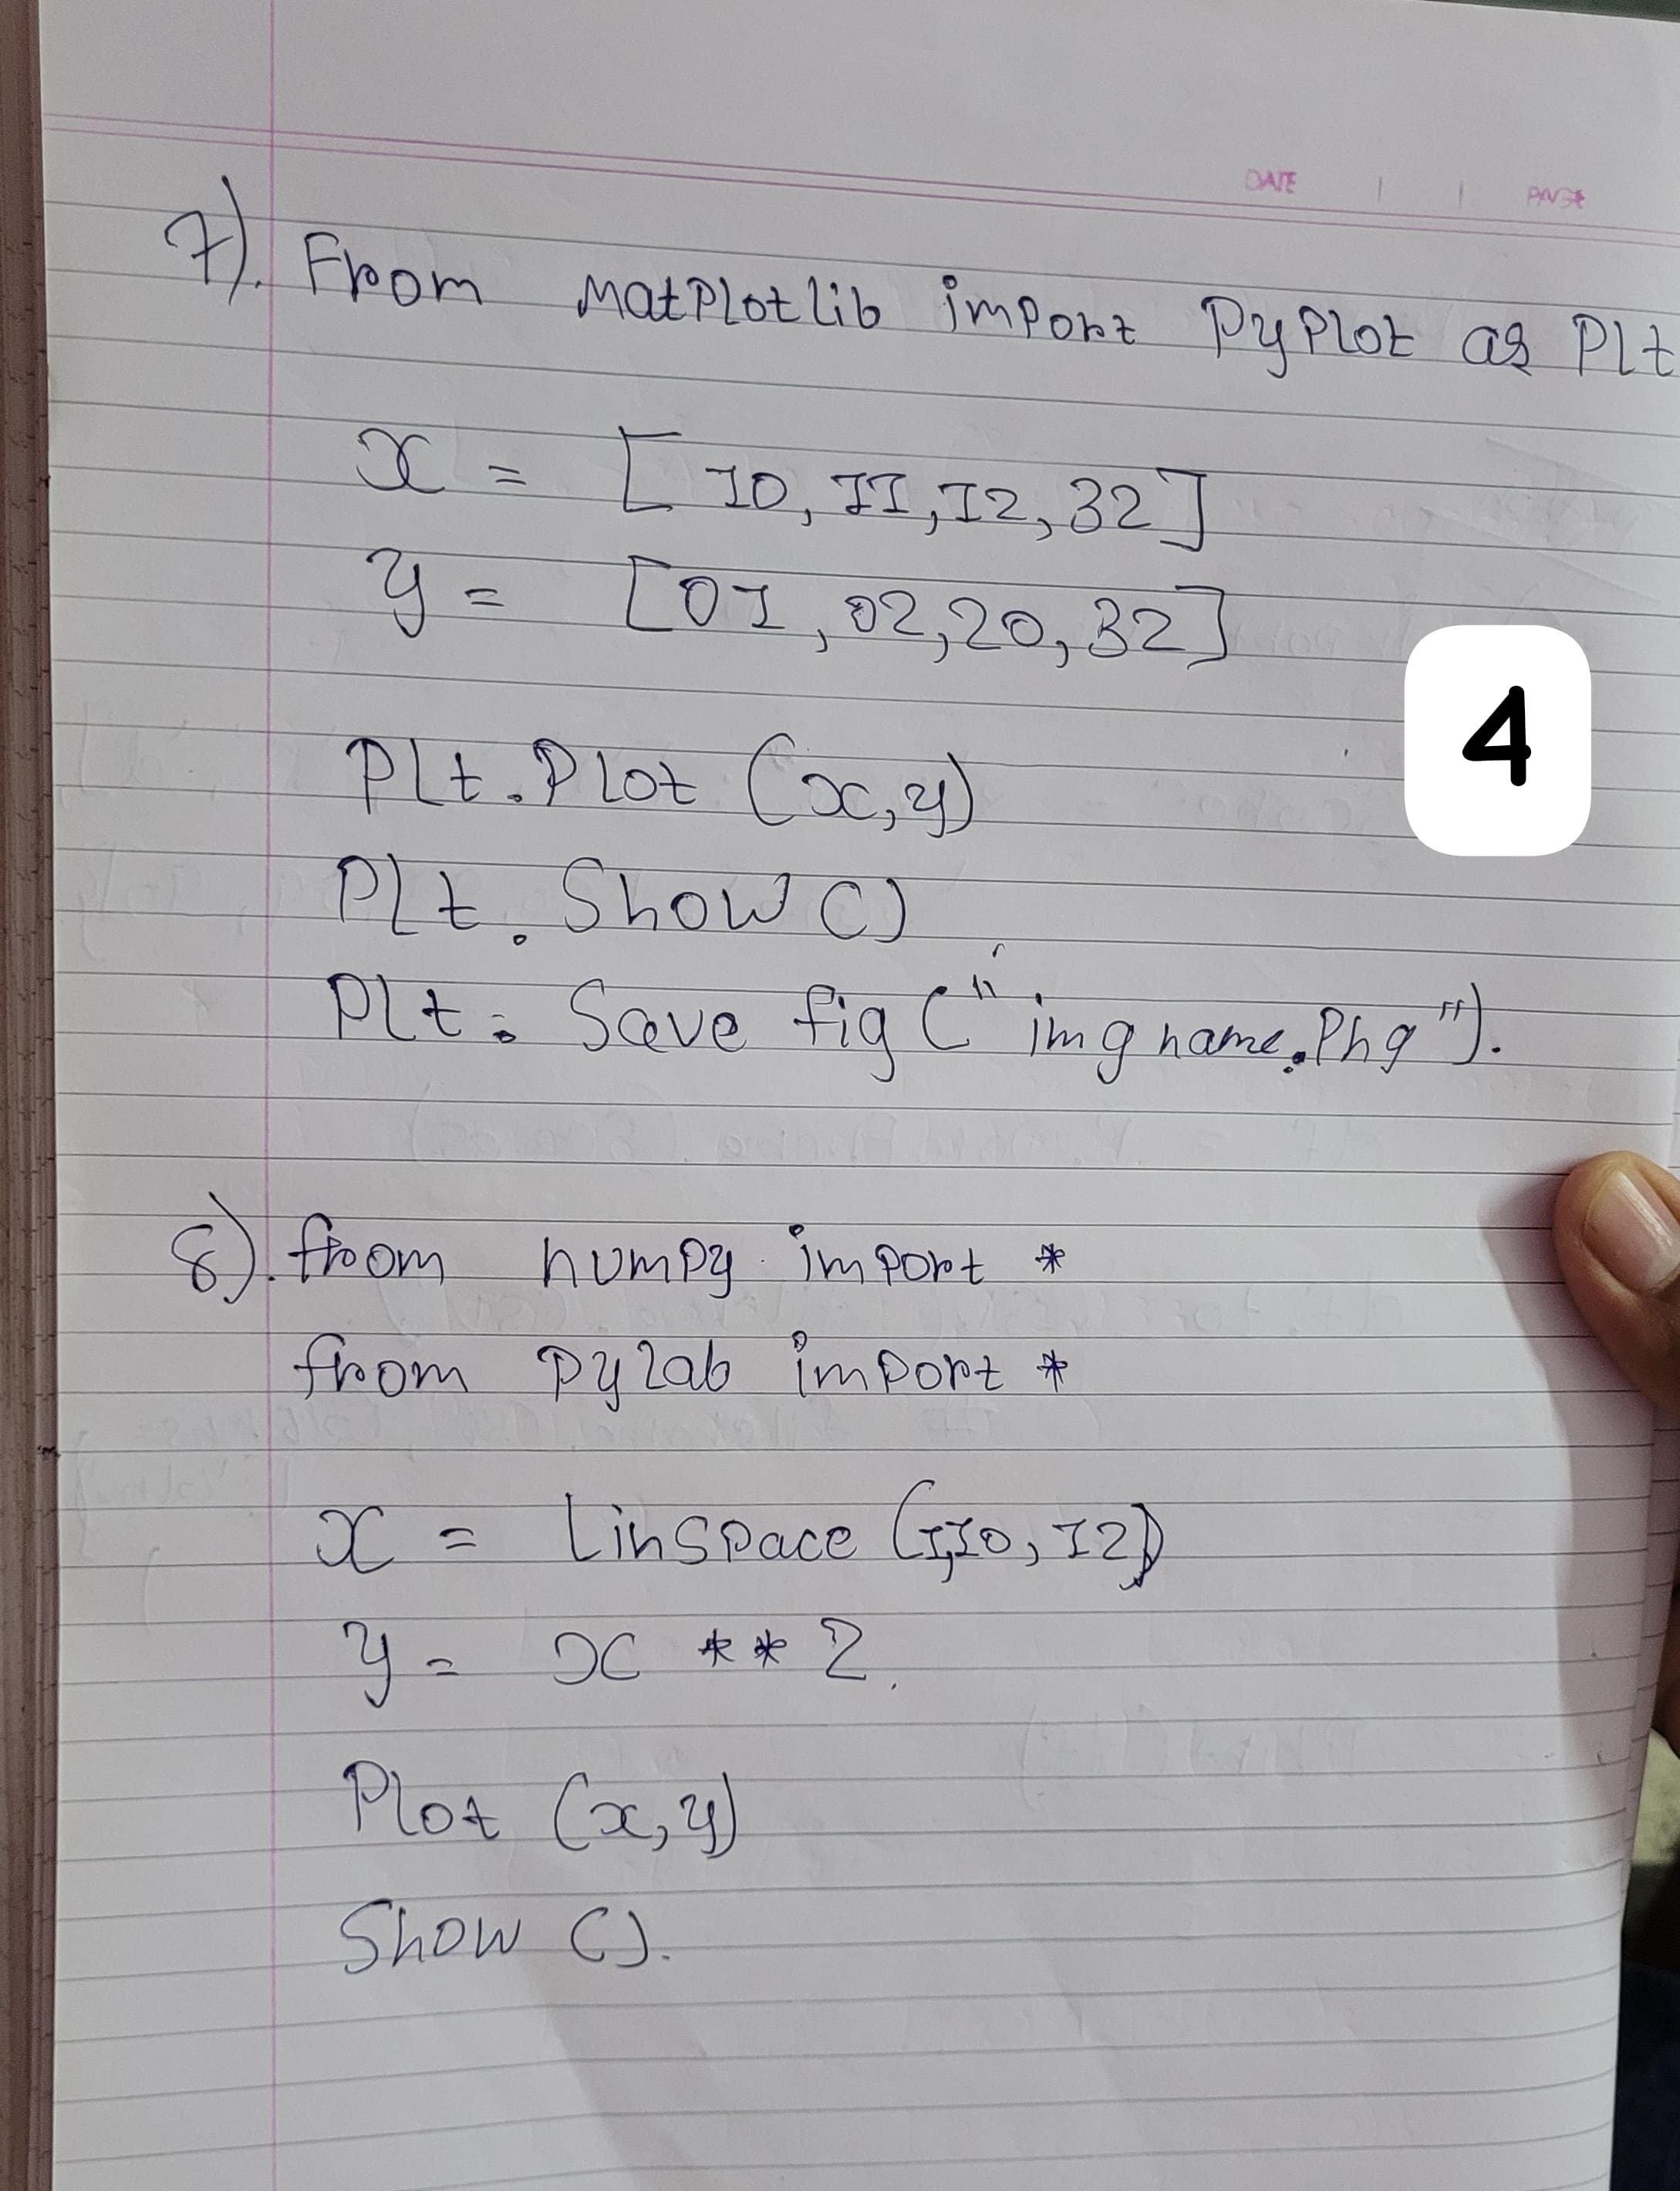 DATE | | PAGE
7). From MatPlotlib import PyPlot as Plt
x = [10, 11, 12, 32]
y = [01, 02, 20, 32]
4
Plt.Plot (x,y)
Plt. Show ()
Plt. Save fig ("img name.Png").
8). from numpy import *
from pylab import *
x = linspace (1,10, 12)
y = x ** 2.
Plot (x,y)
Show ().